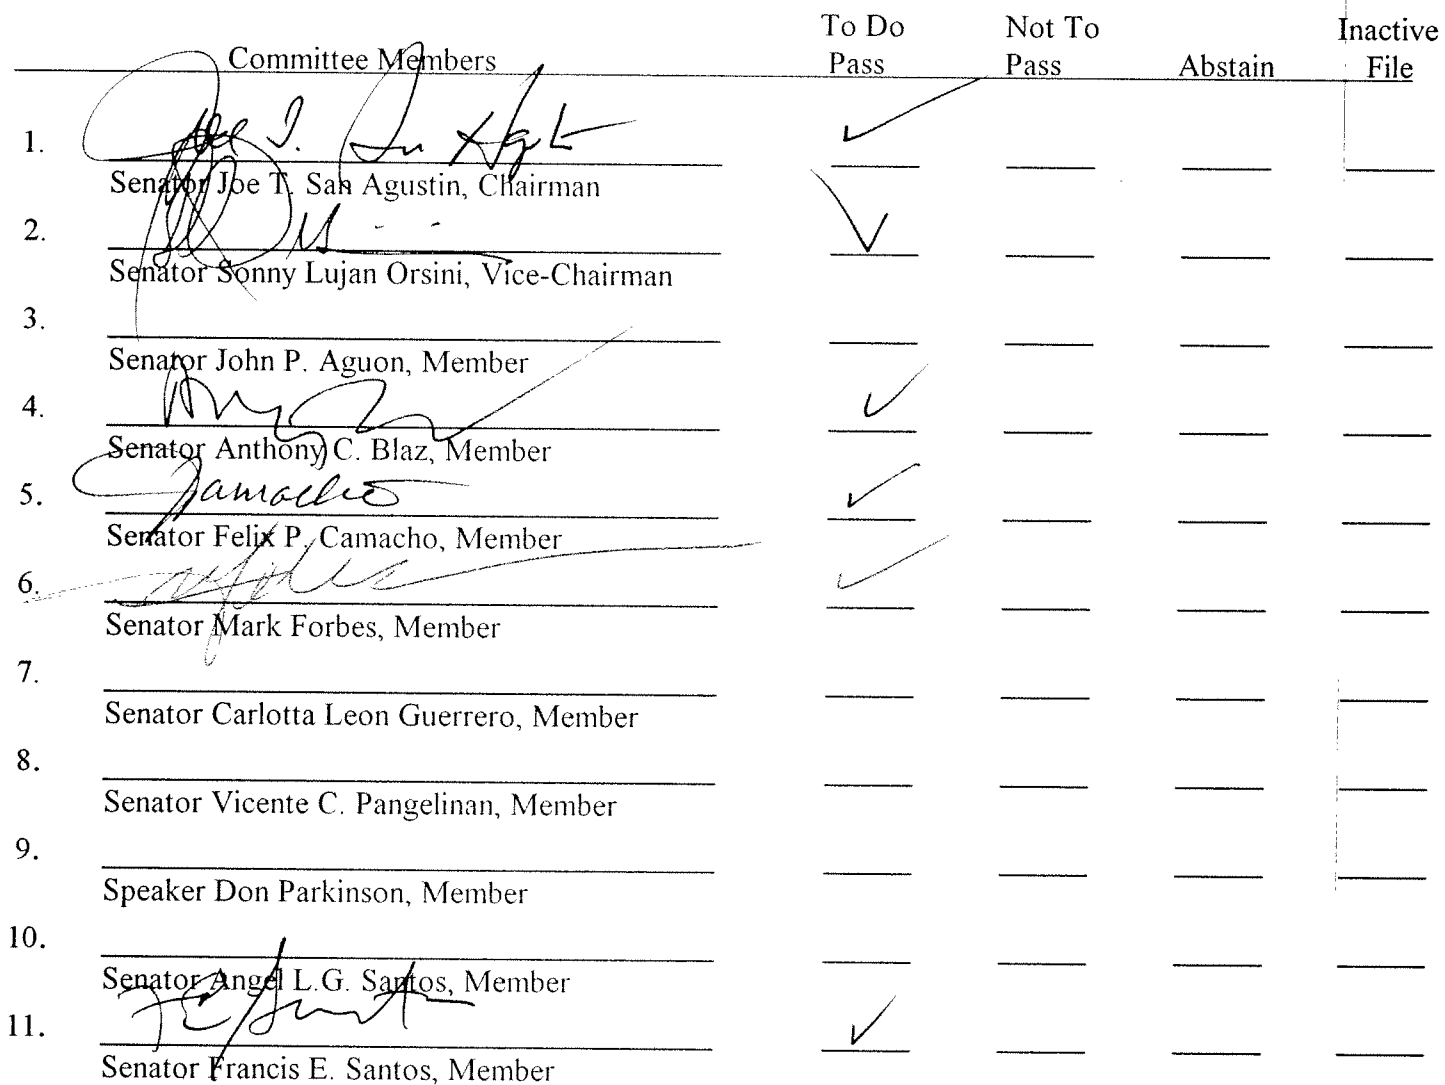 Committee Members To Do Pass Not To Pass Abstain Inactive File
1. Joe T. San Agustin
Senator Joe T. San Agustin, Chairman
2.
Senator Sonny Lujan Orsini, Vice-Chairman
3.
Senator John P. Aguon, Member
4.
Senator Anthony C. Blaz, Member
5. Camacho
Senator Felix P. Camacho, Member
6.
Senator Mark Forbes, Member
7.
Senator Carlotta Leon Guerrero, Member
8.
Senator Vicente C. Pangelinan, Member
9.
Speaker Don Parkinson, Member
10.
Senator Angel L.G. Santos, Member
11.
Senator Francis E. Santos, Member